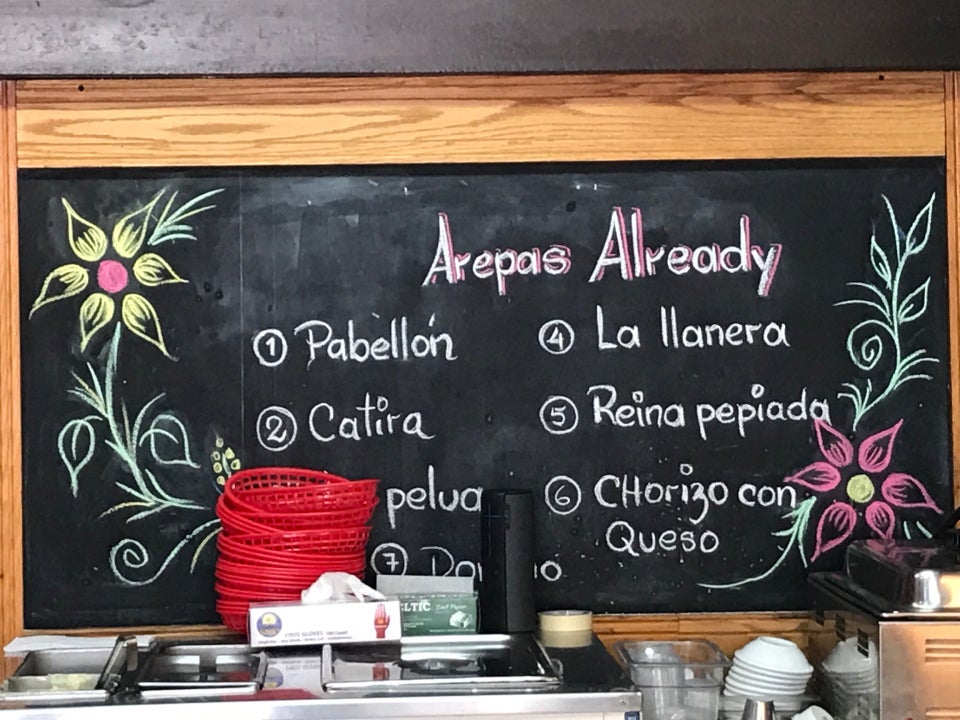 Arepas Already
① Pabellón
② Catira
pelua
④ La llanera
⑤ Reina pepiada
⑥ CHorizo con
Queso
⑦
VINYL GLOVES